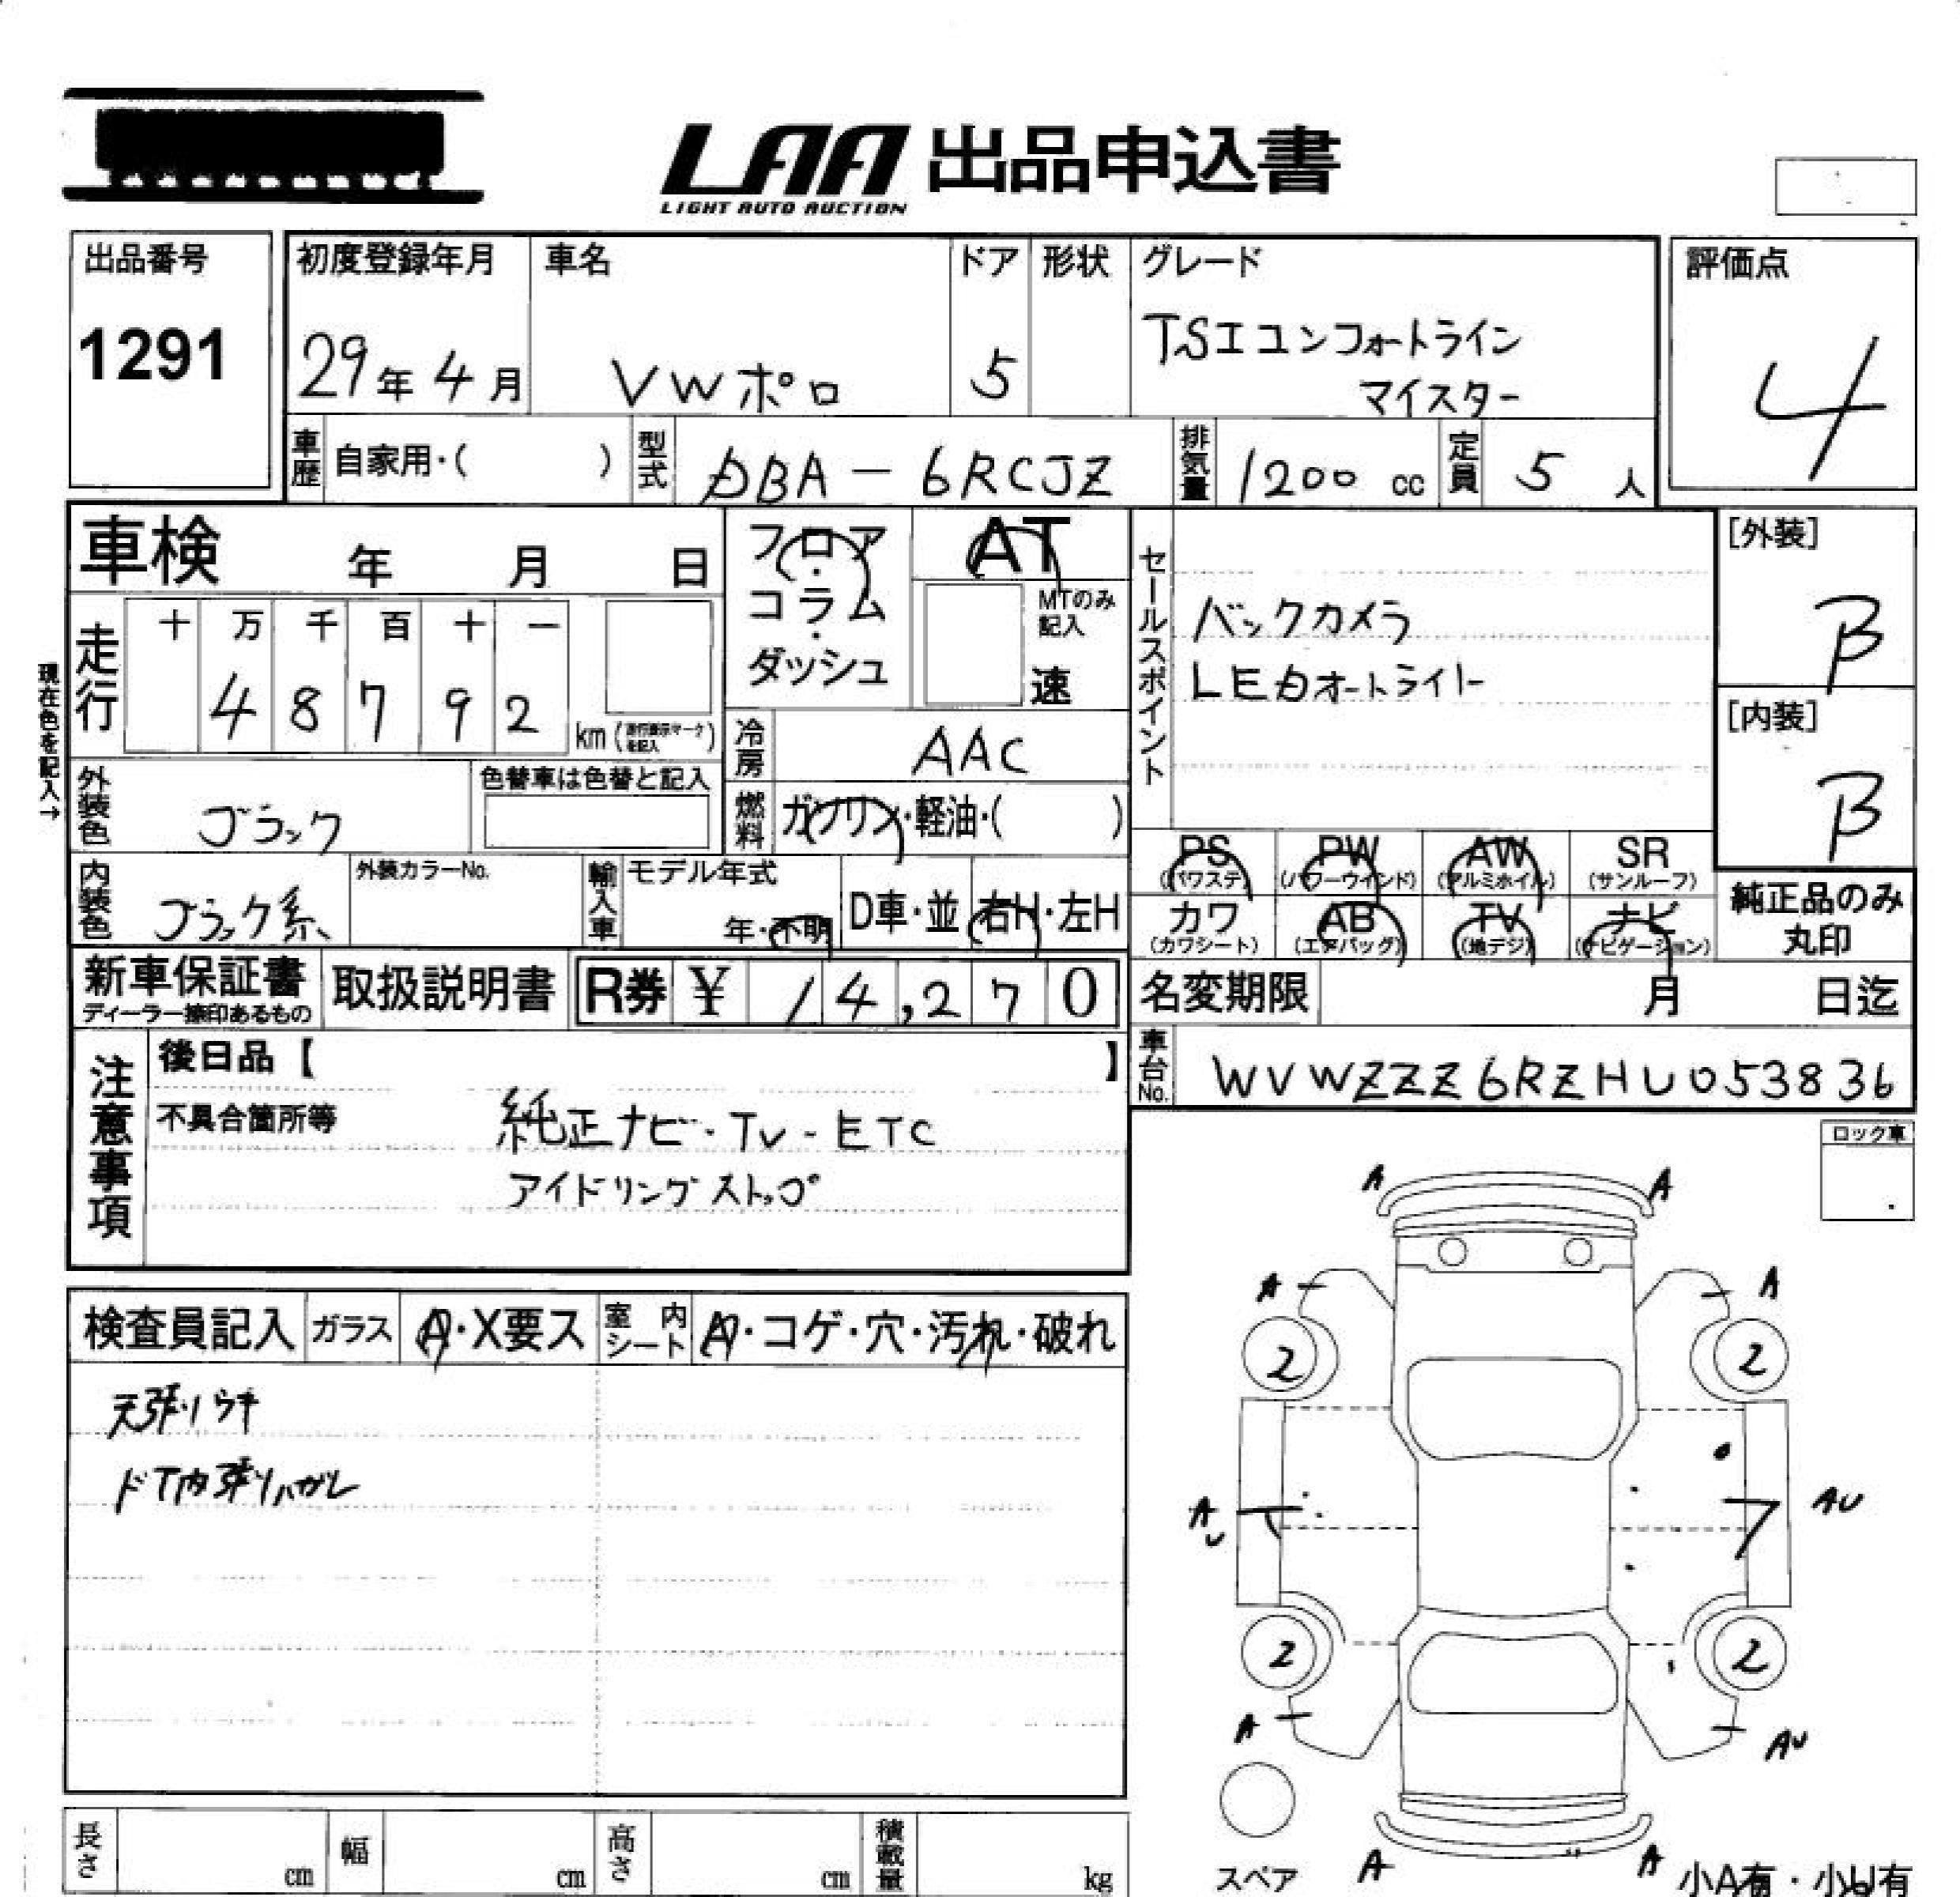 LAA 出品申込書
LIGHT AUTO AUCTION
出品番号
1291
初度登録年月
29年 4月
車名
VWポロ
ドア
5
形状
グレード
TSIコンフォートライン
マイスター
評価点
4
車歴 自家用・( )
型式 DBA-6RCJZ
排気量 1200 cc
定員 5 人
車検 年 月 日
走行
十 万 千 百 十 一
4 8 7 9 2
km
フロア・コラム・ダッシュ
AT
MTのみ記入
速
セールスポイント
バックカメラ
LEDオートライト
[外装]
B
[内装]
B
現在色を記入→
外装色 ブラック
色替車は色替と記入
冷房 AAC
燃料 ガソリン・軽油・( )
内装色 ブラック系
外装カラーNo.
輸入車 モデル年式
年・不明
D車・並 右H・左H
PS (パワステ)
PW (パワーウインド)
AW (アルミホイル)
SR (サンルーフ)
カワ (カワシート)
AB (エアバッグ)
TV (地デジ)
ナビ (ナビゲーション)
純正品のみ
丸印
新車保証書
ディーラー捺印あるもの
取扱説明書
R券 ¥ 14,270
名変期限 月 日迄
車台No. WVWZZZ6RZHU053836
注意事項
後日品【 】
不具合箇所等
純正ナビ・TV・ETC
アイドリングストップ
ロック車
検査員記入 ガラス A・X要ス 室内シート A・コゲ・穴・汚れ・破れ
天張りウキ
ドア内張りハガレ
A A
A A
2 2
AU AU
2 2
A AU
スペア
A A
小A有・小U有
長さ cm 幅 cm 高さ cm 積載量 kg